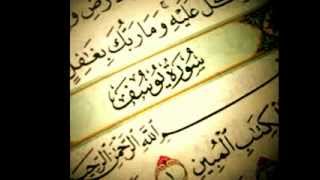 كَّلْ عَلَيْهِ وَمَا رَبُّكَ بِغَٰفِلٍ
سُورَةُ يُوسُفَ
بِسْمِ اللَّهِ الرَّحْمَٰنِ الرَّحِيمِ
الْكِتَٰبِ الْمُبِينِ ١